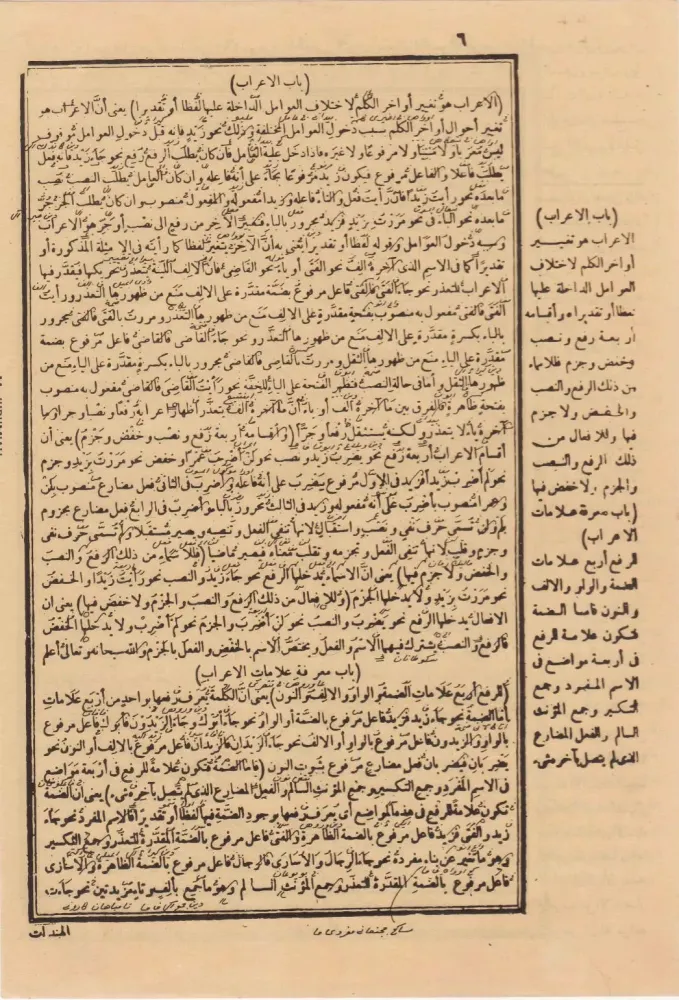 ٦
(باب الاعراب)
(الاعراب هو تغيير أواخر الكلم لاختلاف العوامل الداخلة عليها لفظا أو تقديرا) يعنى أن الاعراب هو
تغيير أحوال أواخر الكلم بسبب دخول العوامل المختلفة وذلك نحو زيد فانه قبل دخول العوامل موقوف
ليس معربا ولا مبنيا ولا مرفوعا ولا غيره فاذا دخل عليه العامل فان كان يطلب الرفع رفع نحو جاء زيد فانه فعل
يطلب فاعلا والفاعل مرفوع فيكون زيد مرفوعا بجاء على أنه فاعله وان كان العامل يطلب النصب نصب
مابعده نحو رأيت زيدا فان رأيت فعل والتاء فاعله وزيدا مفعوله والمفعول منصوب وان كان يطلب الجر جر
مابعده نحو الباء فى نحو مررت بزيد فزيد مجرور بالباء فتغيير الآخر من رفع الى نصب أو جر هو الاعراب
وسببه دخول العوامل وقوله لفظا أو تقديرا يعنى به أن الآخر يتغير لفظا كما رأيته فى الامثلة المذكورة أو
تقديرا كما فى الاسم الذى آخره ألف نحو الفتى أو ياء نحو القاضى فان الالف اللينة يتعذر تحريكها فيقدر فيها
الاعراب للتعذر نحو جاء الفتى فالفتى فاعل مرفوع بضمة مقدرة على الالف منع من ظهورها التعذر ورأيت
الفتى فالفتى مفعول به منصوب بفتحة مقدرة على الالف منع من ظهورها التعذر ومررت بالفتى فالفتى مجرور
بالباء بكسرة مقدرة على الالف منع من ظهورها التعذر ونحو جاء القاضى فالقاضى فاعل مرفوع بضمة
مقدرة على الياء منع من ظهورها الثقل ومررت بالقاضى فالقاضى مجرور بالباء بكسرة مقدرة على الياء منع من
ظهورها الثقل وأما فى حالة النصب فتظهر الفتحة على الياء للخفة نحو رأيت القاضى فالقاضى مفعول به منصوب
بفتحة ظاهرة فالفرق بين ما آخره ألف أو ياء أن ما آخره ألف يتعذر اظهار اعرابه رفعا ونصبا وجرا وما
آخره ياء لا يتعذر ولكنه يستثقل رفعا وجرا (وأقسامه أربعة رفع ونصب وخفض وجزم) يعنى أن
أقسام الاعراب أربعة رفع نحو يضرب زيد ونصب نحو لن أضرب عمرا وخفض نحو مررت بزيد وجزم
نحو لم أضرب زيدا فزيد فى الاول مرفوع بيضرب على أنه فاعله وأضرب فى الثانى فعل مضارع منصوب بلن
وعمرا منصوب بأضرب على أنه مفعوله وزيد فى الثالث مجرور بالباء وأضرب فى الرابع فعل مضارع مجزوم
بلم ولن تسمى حرف نفى ونصب واستقبال لانها تنفى الفعل وتنصبه ويصير مستقبلا ولم تسمى حرف نفى
وجزم وقلب لانها تنفى الفعل وتجزمه وتقلب معناه فيصير ماضيا (فللاسماء من ذلك الرفع والنصب
والخفض ولا جزم فيها) يعنى أن الاسماء يدخلها الرفع نحو جاء زيد والنصب نحو رأيت زيدا والخفض
نحو مررت بزيد ولا يدخلها الجزم (وللافعال من ذلك الرفع والنصب والجزم ولا خفض فيها) يعنى ان
الافعال يدخلها الرفع نحو يضرب والنصب نحو لن أضرب والجزم نحو لم أضرب ولا يدخلها الخفض
فالرفع والنصب يشترك فيهما الاسم والفعل ويختص الاسم بالخفض والفعل بالجزم والله سبحانه وتعالى أعلم
(باب معرفة علامات الاعراب)
(للرفع أربع علامات الضمة والواو والالف والنون) يعنى أن الكلمة يعرف رفعها بواحد من أربع علامات
اما الضمة نحو جاء زيد فزيد فاعل مرفوع بالضمة أو الواو نحو جاء أبوك وجاء الزيدون فأبوك فاعل مرفوع
بالواو والزيدون فاعل مرفوع بالواو أو الالف نحو جاء الزيدان فالزيدان فاعل مرفوع بالالف أو النون نحو
يضربان فيضربان فعل مضارع مرفوع بثبوت النون (فاما الضمة فتكون علامة للرفع فى أربعة مواضع
فى الاسم المفرد وجمع التكسير وجمع المؤنث السالم والفعل المضارع الذى لم يتصل بآخره شىء) يعنى أن الضمة
تكون علامة للرفع فى هذه المواضع أى يعرف رفعها بوجود الضمة فيها لفظا أو تقديرا فالاسم المفرد نحو جاء
زيد والفتى فزيد فاعل مرفوع بالضمة الظاهرة والفتى فاعل مرفوع بالضمة المقدرة للتعذر وجمع التكسير
وهو ما تغير عن بناء مفرده نحو جاء الرجال والاسارى فالرجال فاعل مرفوع بالضمة الظاهرة والاسارى
فاعل مرفوع بالضمة المقدرة للتعذر وجمع المؤنث السالم وهو ما جمع بألف وتاء مزيدتين نحو جاءت
الهندات
(باب الاعراب)
الاعراب هو تغيير
أواخر الكلم لاختلاف
العوامل الداخلة عليها
لفظا أو تقديرا وأقسامه
أربعة رفع ونصب
وخفض وجزم فللاسماء
من ذلك الرفع والنصب
والخفض ولا جزم
فيها وللافعال من
ذلك الرفع والنصب
والجزم ولا خفض فيها
(باب معرفة علامات
الاعراب)
للرفع أربع علامات
الضمة والواو والالف
والنون فاما الضمة
فتكون علامة للرفع
فى أربعة مواضع فى
الاسم المفرد وجمع
التكسير وجمع المؤنث
السالم والفعل المضارع
الذى لم يتصل بآخره شىء